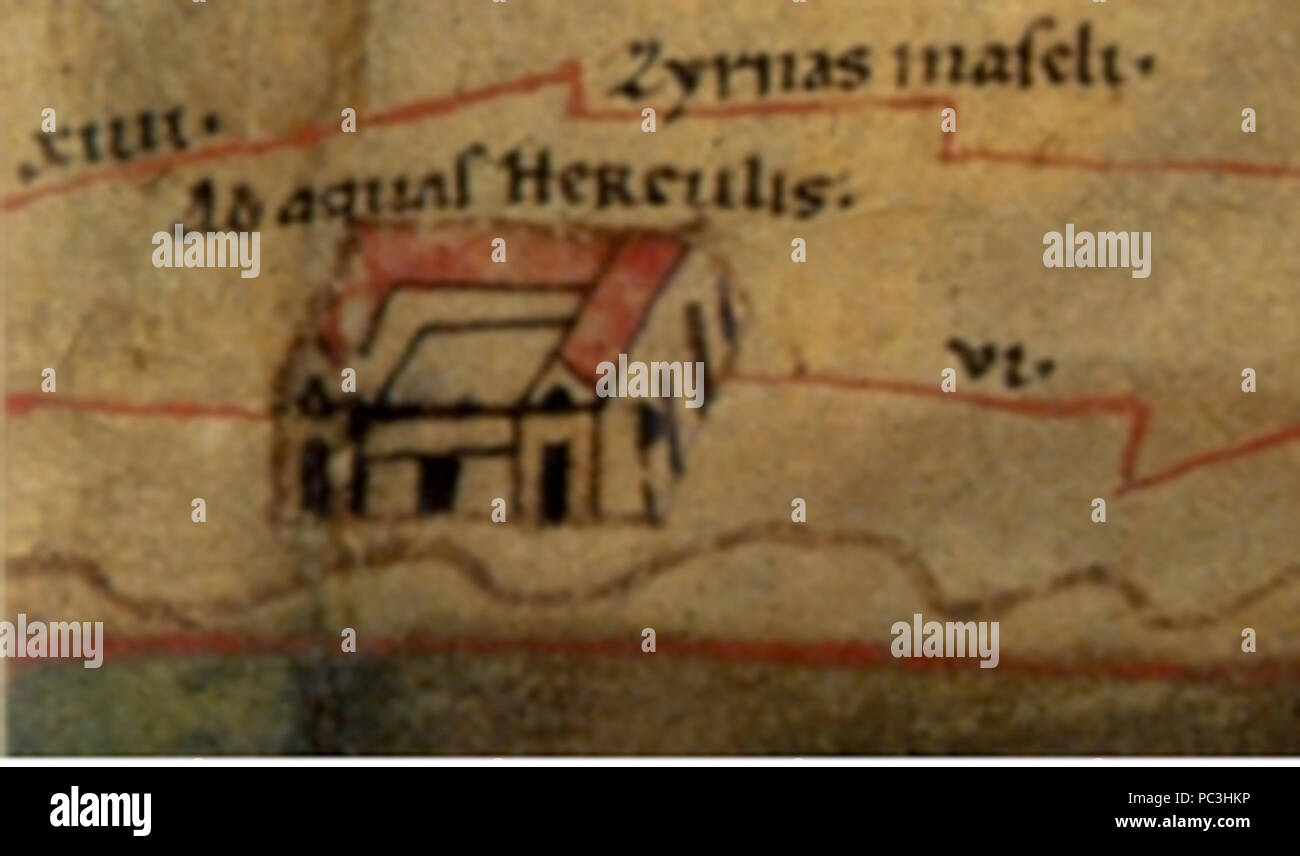 Zyrnas maſcli·
xıııı·
Ad aquaſ Herculis·
vı·
alamy
alamy
alamy
alamy
alamy
alamy
Image ID: PC3HKP
www.alamy.com